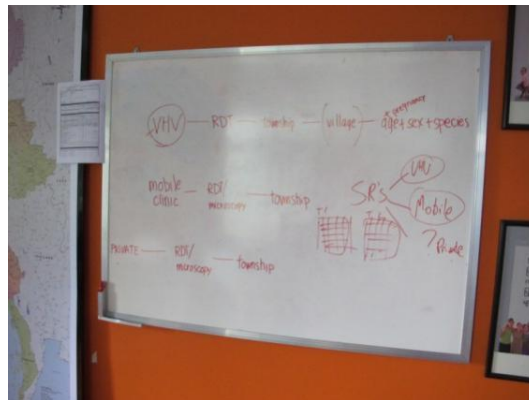 * pregnancy
VHV — RDT — township — (village) — age + sex + species
mobile clinic — RDT/ microscopy — township
SR's
VHV
Mobile
? Private
PRIVATE — RDT/ microscopy — township